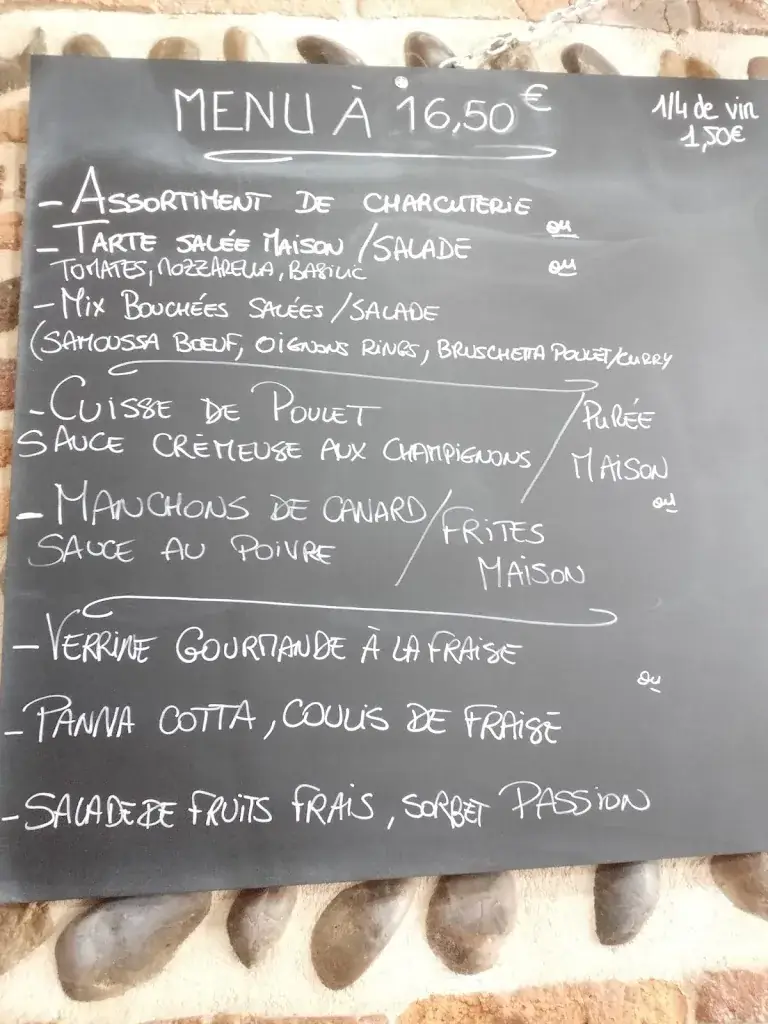 MENU À 16,50€
1/4 de vin
1,50€
- ASSORTIMENT DE CHARCUTERIE
ou
- TARTE SALÉE MAISON / SALADE
TOMATES, MOZZARELLA, BASILIC
ou
- MIX BOUCHÉES SALÉES / SALADE
(SAMOUSSA BOEUF, OIGNONS RINGS, BRUSCHETTA POULET/CURRY
- CUISSE DE POULET
SAUCE CRÉMEUSE AUX CHAMPIGNONS / PURÉE
MAISON
ou
- MANCHONS DE CANARD / FRITES
SAUCE AU POIVRE
MAISON
- VERRINE GOURMANDE À LA FRAISE
ou
- PANNA COTTA, COULIS DE FRAISE
- SALADE DE FRUITS FRAIS, SORBET PASSION